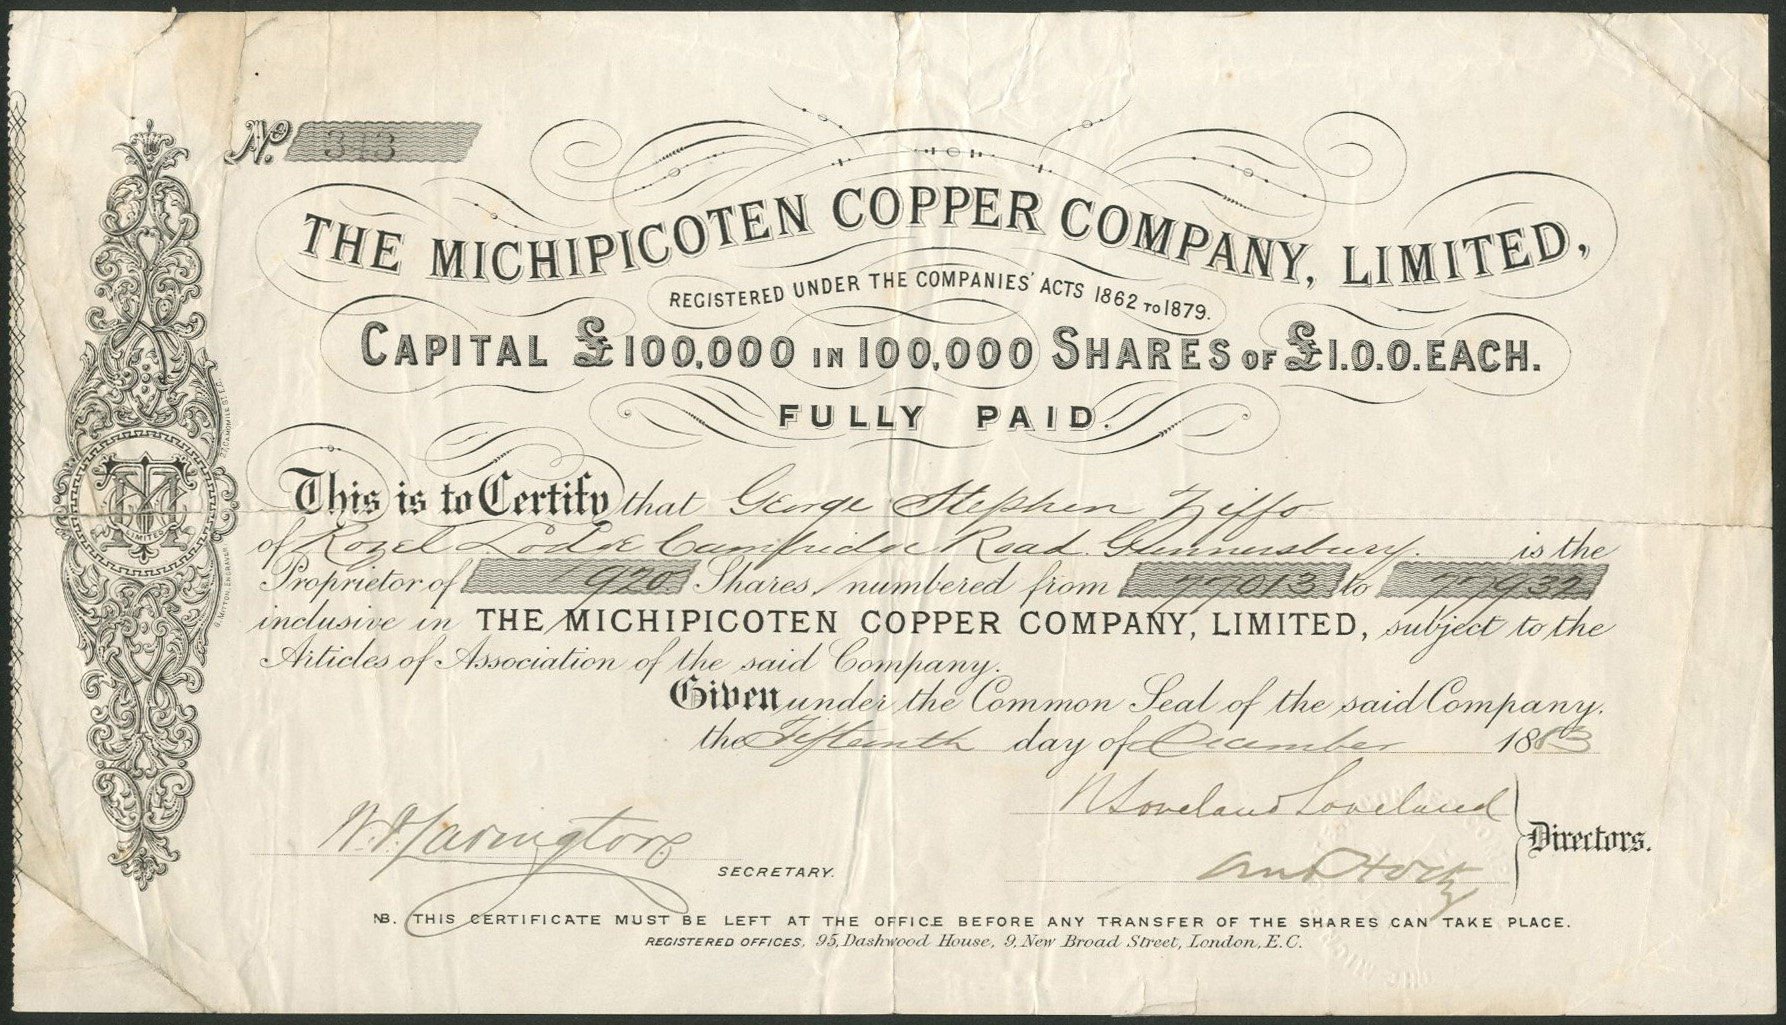 No. 343
THE MICHIPICOTEN COPPER COMPANY, LIMITED,
REGISTERED UNDER THE COMPANIES' ACTS 1862 TO 1879.
CAPITAL £100,000 IN 100,000 SHARES OF £1.0.0. EACH.
FULLY PAID.
This is to Certify that George Stephen Ziffo
of Rozel Lodge Cambridge Road Gunnersbury. is the
Proprietor of 920 Shares, numbered from 77013 to 77932
inclusive in THE MICHIPICOTEN COPPER COMPANY, LIMITED, subject to the
Articles of Association of the said Company.
Given under the Common Seal of the said Company.
the Fifteenth day of December 1883
Loveland Loveland
Directors.
SECRETARY.
NB. THIS CERTIFICATE MUST BE LEFT AT THE OFFICE BEFORE ANY TRANSFER OF THE SHARES CAN TAKE PLACE.
REGISTERED OFFICES, 95, Dashwood House, 9, New Broad Street, London, E.C.
LIMITED